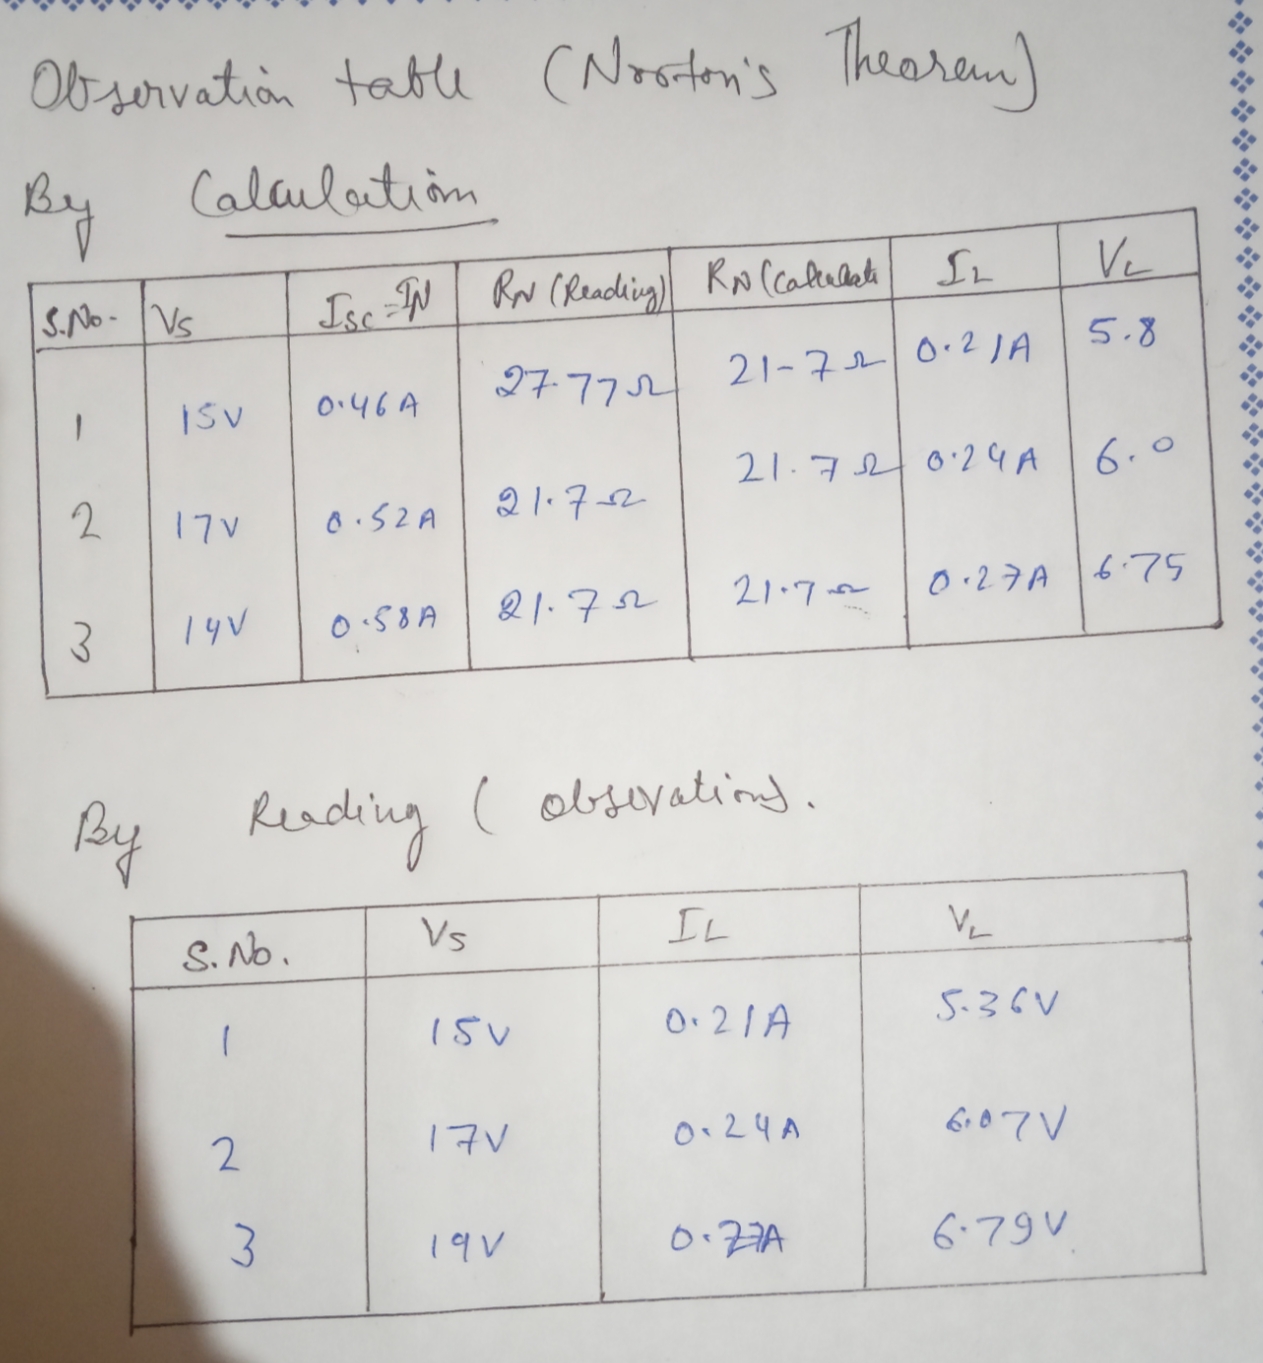 Observation table (Norton's Theorem)
By Calculation
S.No. Vs Isc=IN RN (Reading) RN (Calculate IL VL
1 15V 0.46A 27.77Ω 21-7Ω 0.21A 5.8
2 17V 0.52A 21.7Ω 21.7Ω 0.24A 6.0
3 14V 0.58A 21.7Ω 21.7Ω 0.27A 6.75
By Reading ( observations.
S. No. Vs IL VL
1 15V 0.21A 5.36V
2 17V 0.24A 6.07V
3 19V 0.27A 6.79V